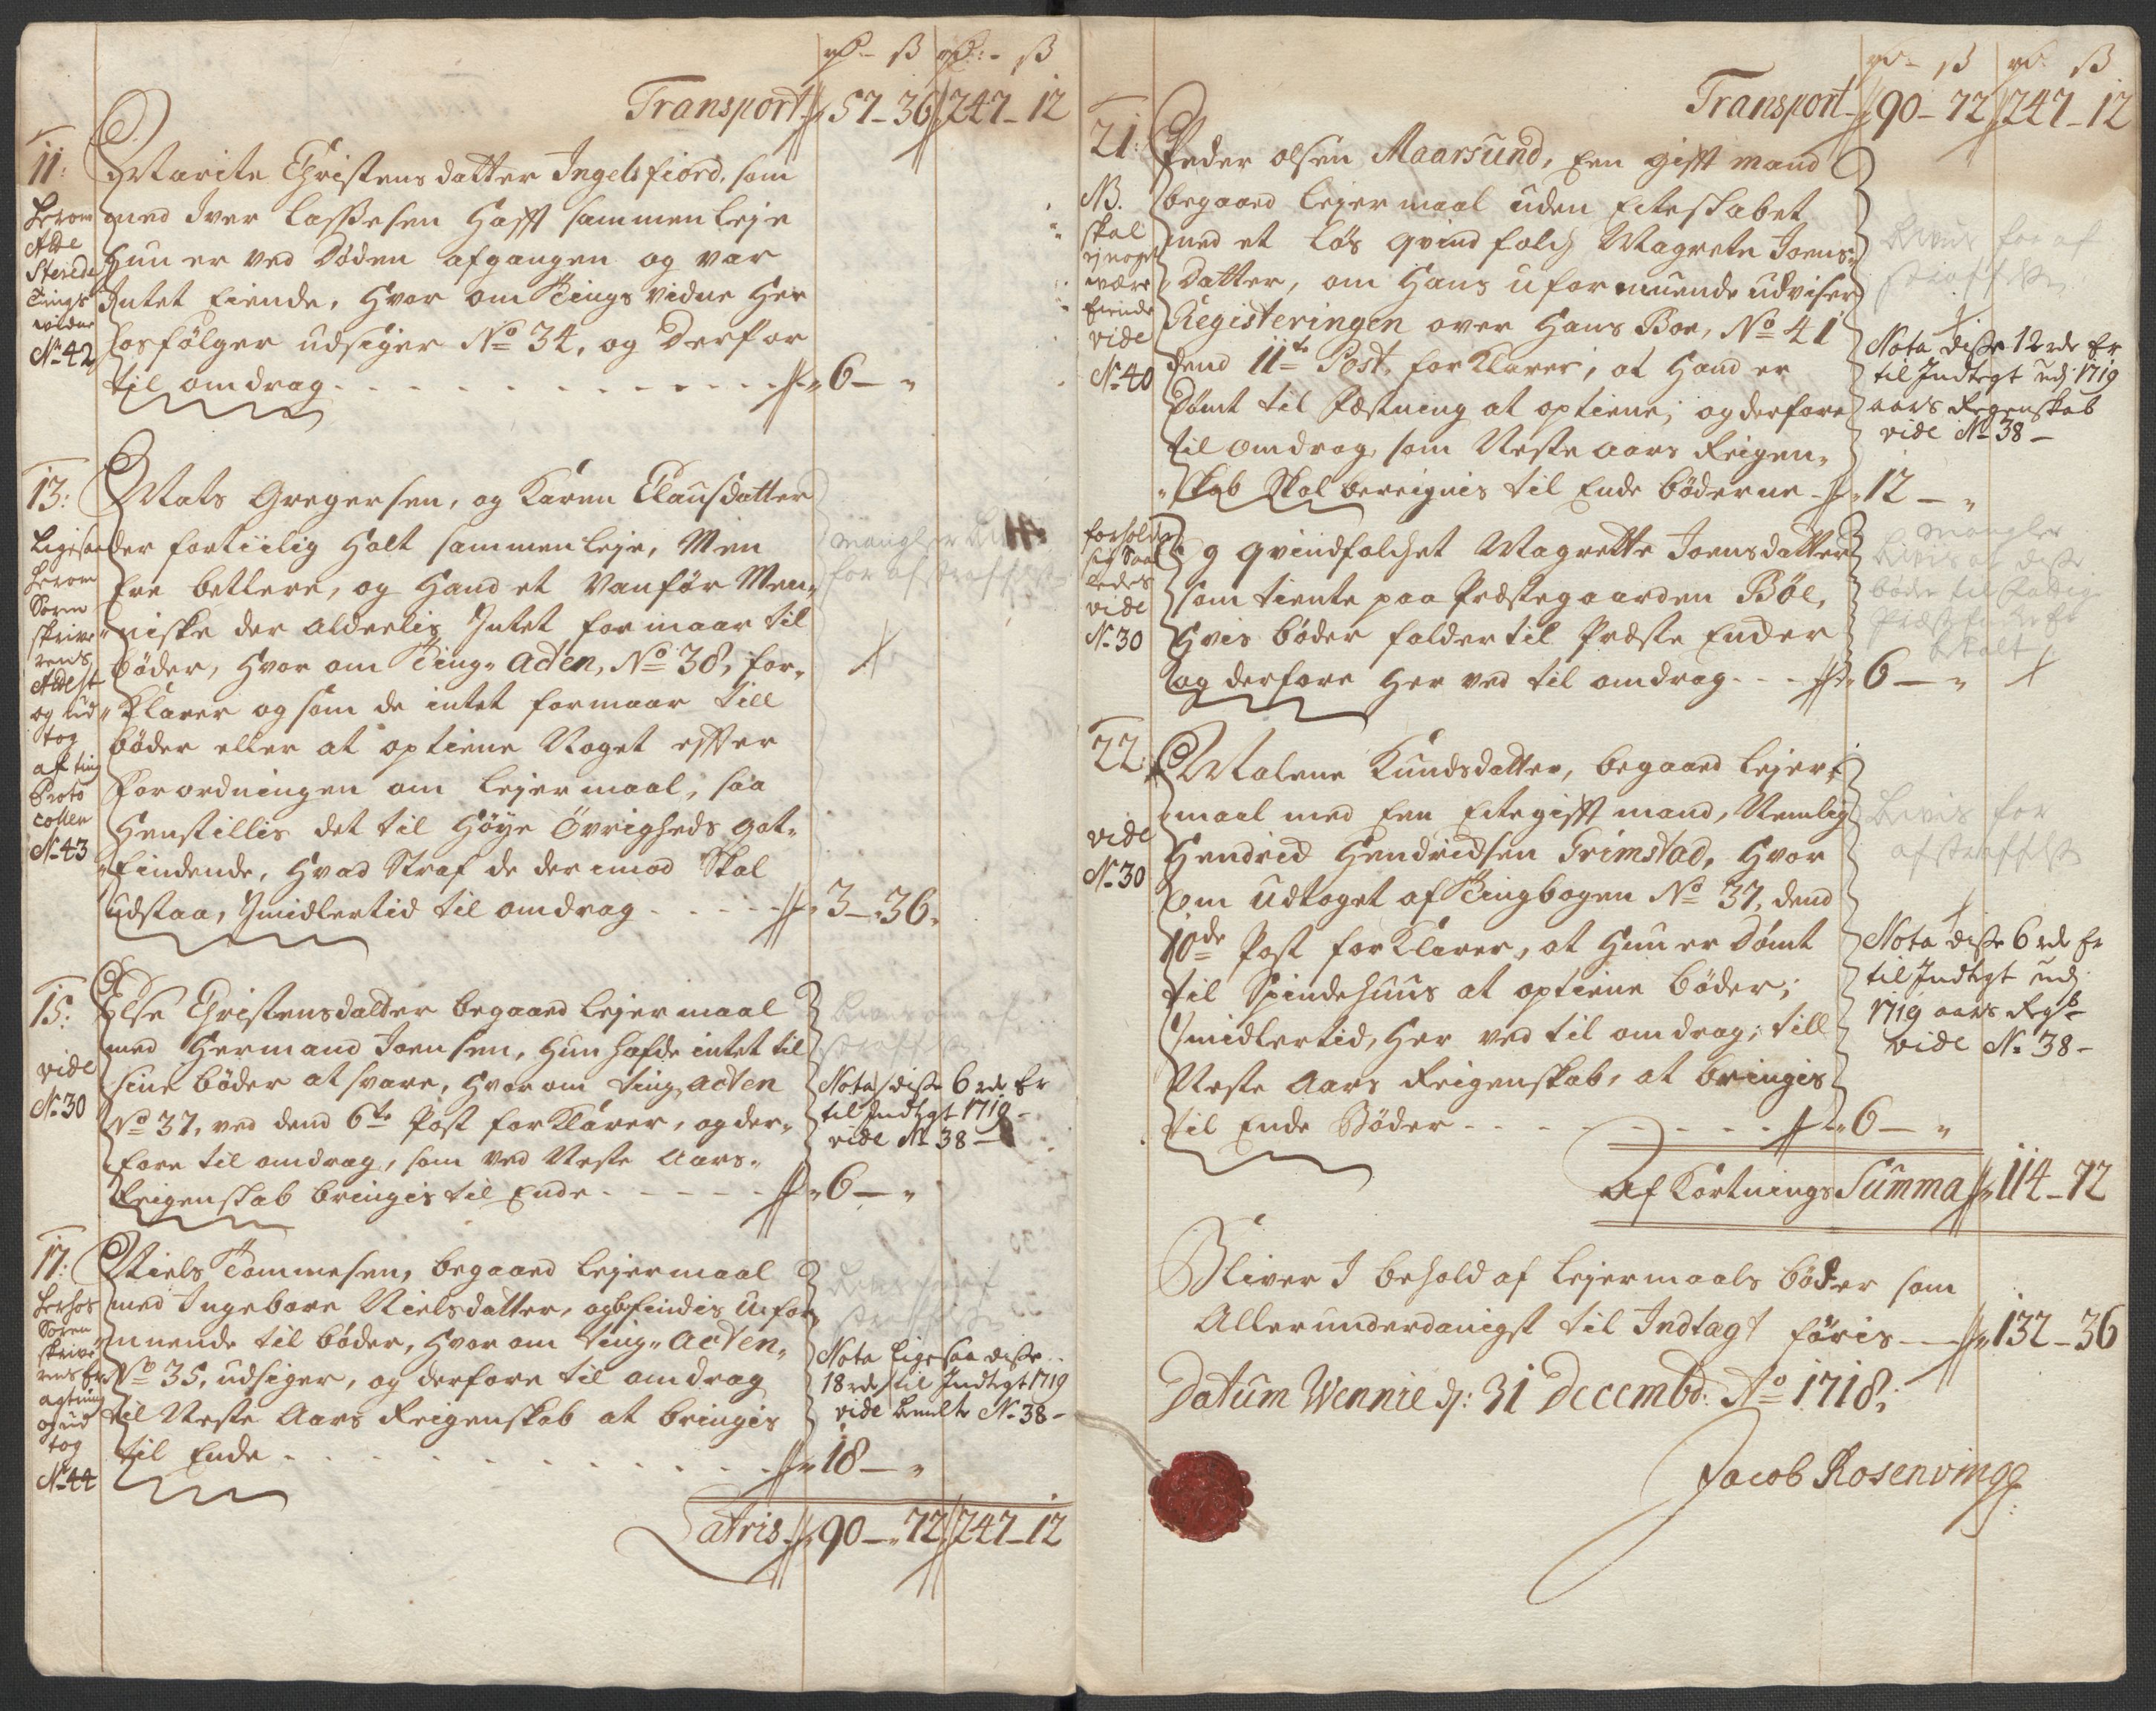 rd - ß rd: - ß
Transport 57 - 36 247 - 12
11: Marite Christens datter Ingelsfiord, som
med Iver Lassesen Hafft sammenleje
Hun er ved Døden afgangen og var
Intet Eiende, Hvor om Tings vidne Her
hosfølger udsiger No 34, og Derfor
til omdrag - - - 6 - "
herom
Atte
sterede
Tings
widne
No 42
13: Mats Gregersen, og Karen Clausdatter
der fortiilig Holt sammenleje, Men
Ere bettlere, og Hand et Vanför Men-
niske der Alderlis Intet formaar til
böder, Hvor om Ting-Acten, No 38, for-
Klarer og som de intet formaar till
böder eller at optiene Noget effter
Forordningen om lejermaal, saa
Henstillis det til Höye Övrigheds got-
findende, Hvad Straf de derimod Skal
udstaa, Imidlertid til omdrag - - - 3 - 36 -
Ligesaa
herom
Soren
skrive
rens
Attest
og ud
tog
af ting
Proto
collen
No 43
mangler
for afstraffelse
15: Else Christensdatter begaaed lejermaal
med Hermand Joensen, Hun hafde intet til
sine böder at svare, Hvorom Ting Acten
No 37, ved dend 6te Post forklarer, og der-
fore til omdrag, som ved Neste Aars-
Reigenskab bringis til Ende - - - 6 - "
vide
No 30
Nota disse 6 rdr Er
til Indtegt 1719 -
vide No 38 -
17: Niels Tommesen, begaaed lejermaal
med Ingebore Nielsdatter, og befindis u-for-
muende til böder, Hvor om Ting-Acten
No 35, udsiger, og derfore til omdrag
til Neste Aars Reigenskab at bringis
til Ende - - - 18 - "
herhos
Soren
skrive
rens
og ud
tog
No 44
Nota Ligesaa disse
18 rdr til Indtegt 1719
vide No 38 -
Latris 90 - 72 247 - 12
rd - ß rd: ß
Transport 90 - 72 247 - 12
21: Peder olsen Maarsund, Een gifft mand
begaaed lejermaal uden Ecteskabet
med et Løs qvindfolch Magrete Joens-
Datter, om Hans uformuende udviser
Registeringen over Hans Boe, No 41
dend 11te Post forklarer, at Hand er
Dömt til Festning at optiene, og derfore
til omdrag, som Neste aars Reigen-
skab Skal bereignis til Ende böderne - 12 - "
NB.
skal
ej noget
være
Eiende
vide
No 40
Bevis for af
straffelse
Nota disse 12 rdr Er
til Indtegt udj 1719
aars Regenskab
vide No 38 -
Og qvindfolchet Magrette Joensdatter
som tiente paa Præstegaarden Böe,
Hvis böder falder til Præste Ender
og derfore Her ved til omdrag - - - 6 - "
forholder
sig Saa
ledes
vide
No 30
mangler
Bevis at disse
böder til
betalt
22: Malene Knudsdatter, begaaed lejer-
maal med Een Ectegifft mand, Nemlig
Hendrich Hendrichsen Grimstad, Hvor
om Udtoget af Tingbogen No 37, dend
10de Post forklarer, at Hun er Dömt
til Spindehuus at optiene böder;
Imidlertid, Her ved til omdrag, till
Neste Aars Reigenskab, at bringis
til Ende Böder - - - 6 - "
vide
No 30
Bevis for
afstraffelse
Nota disse 6 rdr Er
til Indtegt udj
1719 aars Regsk
vide No 38 -
Af Kortnings Summa 114 - 72
Bliver I behold af lejermaals böder som
Allerunderdanigst til Indtagt föris - 132 - 36
Datum Wennie d: 31 Decembd: Ao 1718,
Jacob Rosenvinge